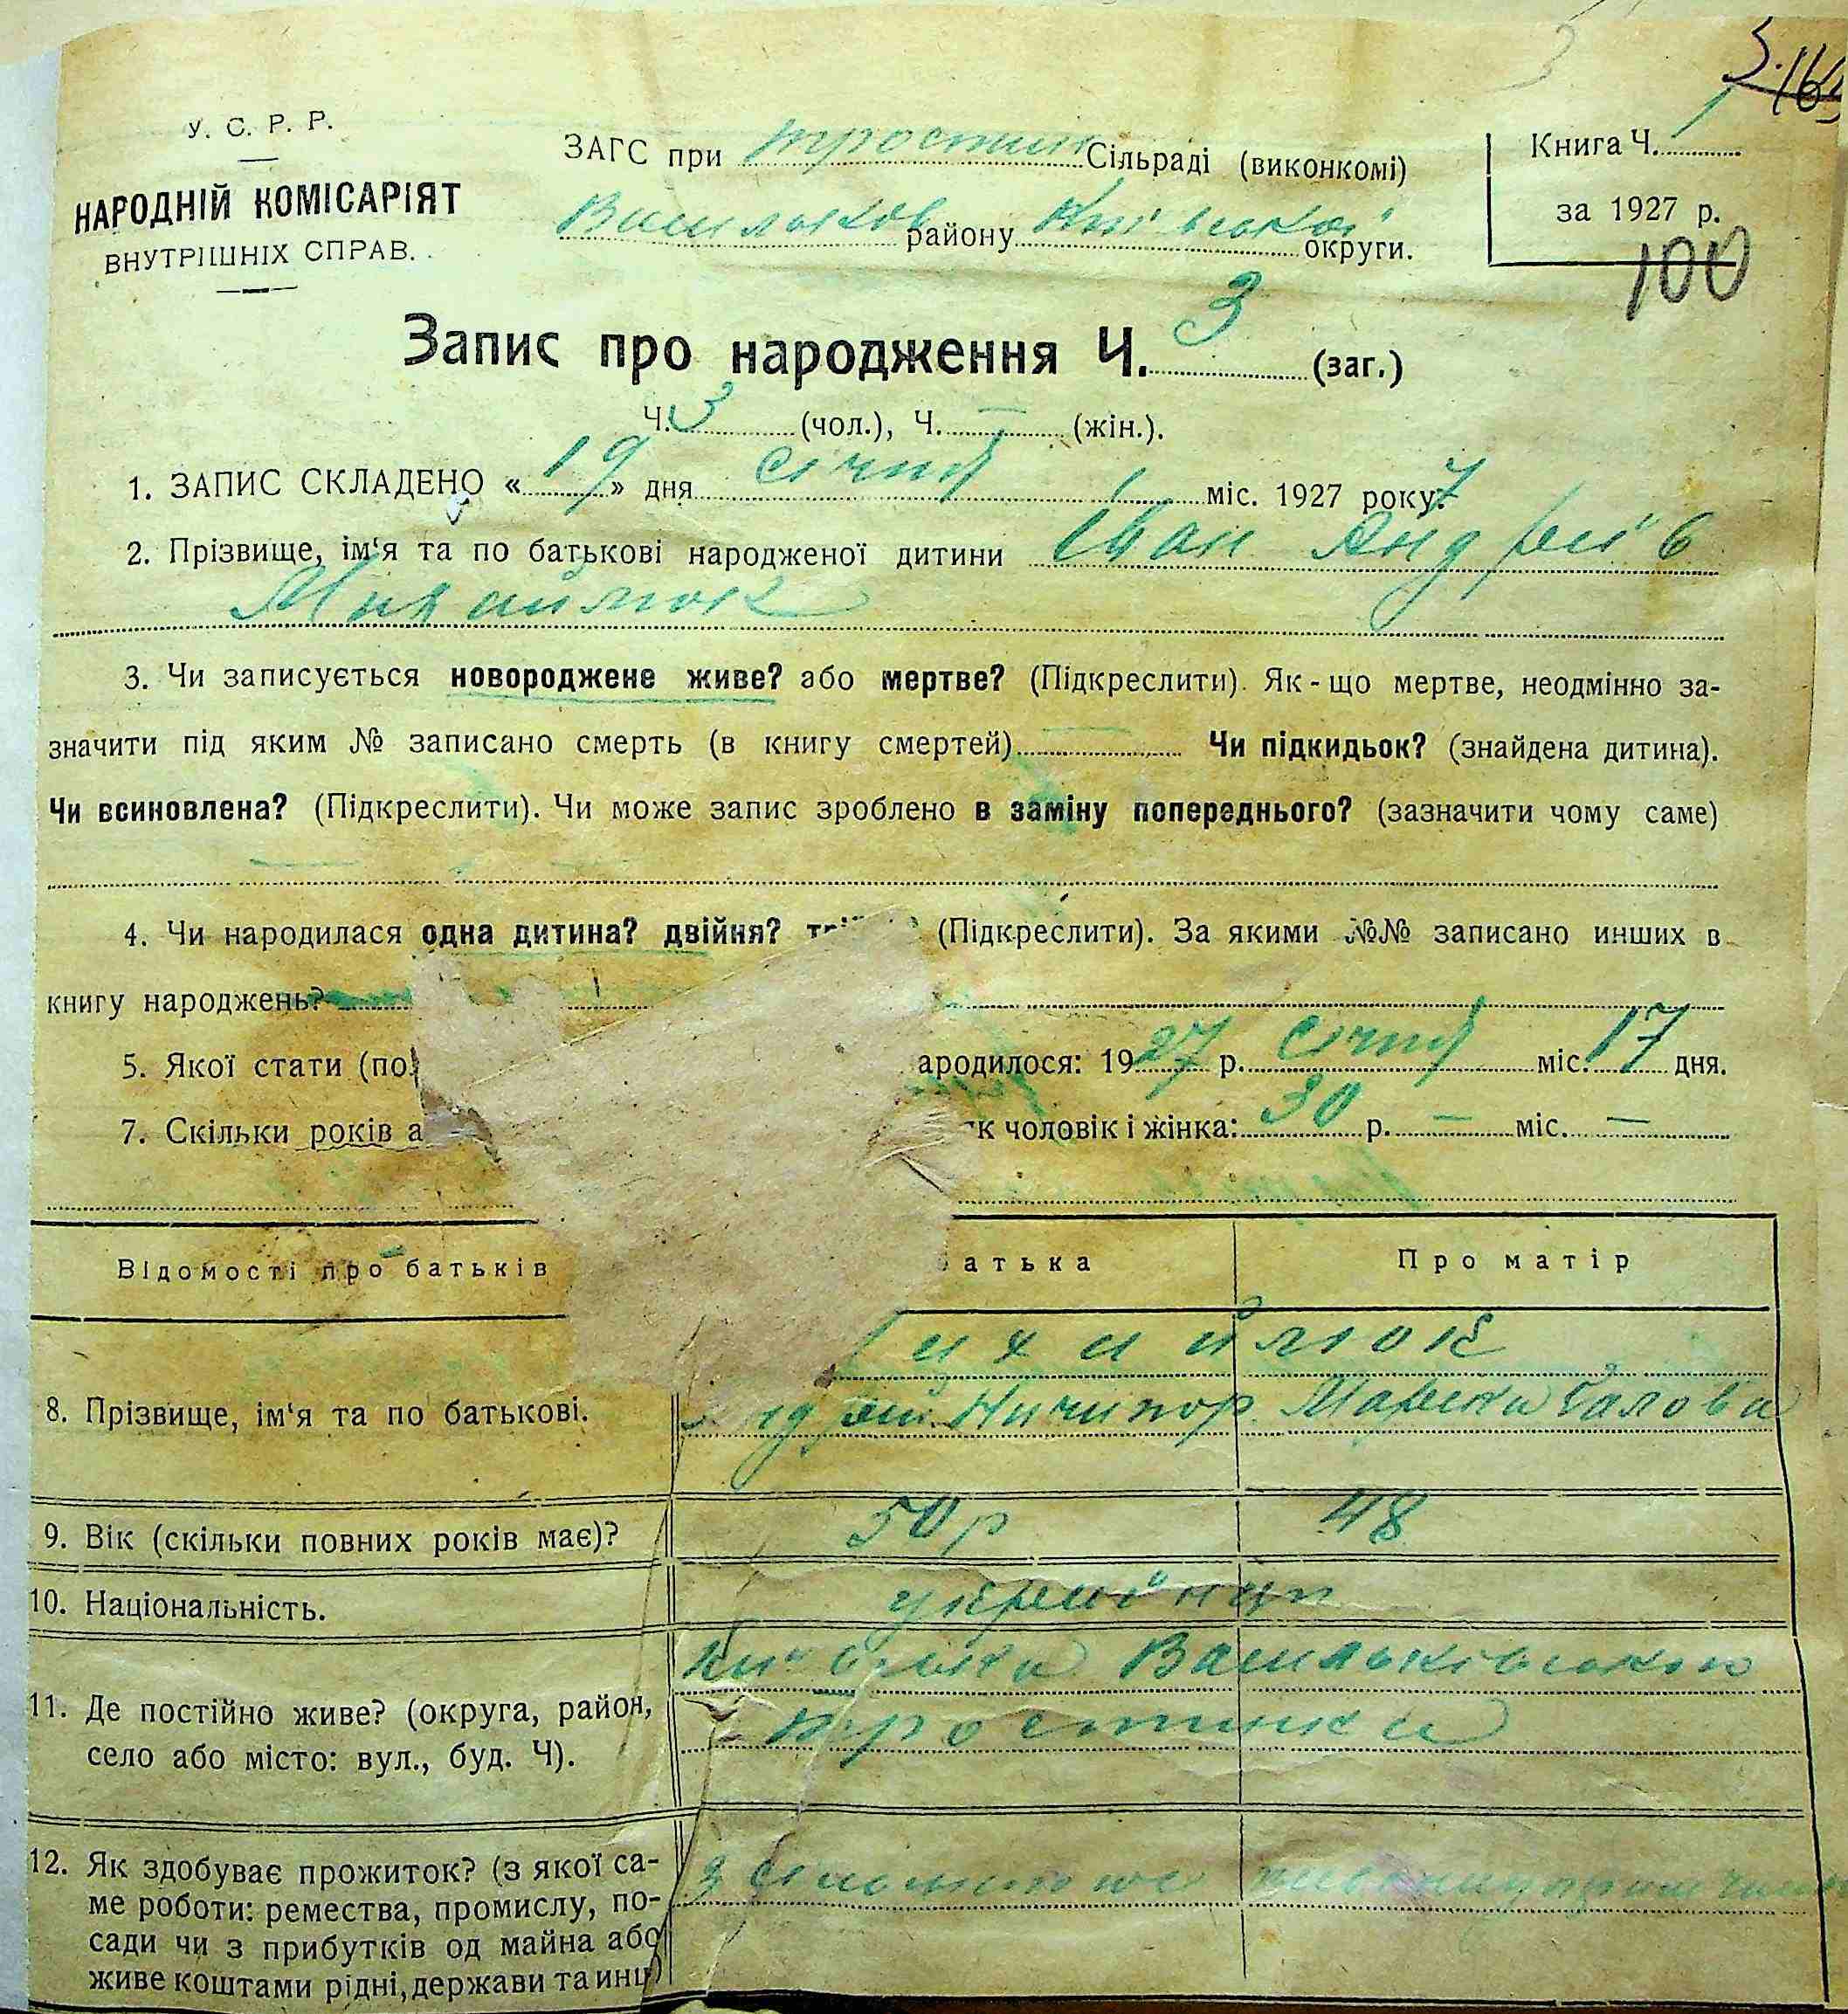 З.
У. С. Р. Р.
НАРОДНІЙ КОМІСАРІЯТ
ВНУТРІШНІХ СПРАВ.
ЗАГС при тростин Сільраді (виконкомі)
Васильков району Київської округи.
Книга Ч. 1
за 1927 р.
100
Запис про народження Ч. 3 (заг.)
Ч. 3 (чол.), Ч. — (жін.).
1. ЗАПИС СКЛАДЕНО « 19 » дня січня міс. 1927 року. 7
2. Прізвище, ім'я та по батькові народженої дитини Іван Андріїв
Михайлюк
3. Чи записується новороджене живе? або мертве? (Підкреслити). Як-що мертве, неодмінно за-
значити під яким № записано смерть (в книгу смертей) — Чи підкидьок? (знайдена дитина).
Чи всиновлена? (Підкреслити). Чи може запис зроблено в заміну попереднього? (зазначити чому саме)
4. Чи народилася одна дитина? двійня? (Підкреслити). За якими №№ записано инших в
книгу народжень?
5. Якої стати (по ародилося: 1927 р. січня міс. 17 дня.
7. Скільки років а к чоловік і жінка: 30 р. — міс. —
Відомості про батьків атька Про матір
ихайлюк
8. Прізвище, ім'я та по батькові. Андрій Ничипор. Марія
9. Вік (скільки повних років має)? 50 р 48
10. Національність. українци
11. Де постійно живе? (округа, район,
село або місто: вул., буд. Ч).
Київська Васильківського
тростинка
12. Як здобуває прожиток? (з якої са-
ме роботи: ремества, промислу, по-
сади чи з прибутків од майна або
живе коштами рідні, держави та инш)
з